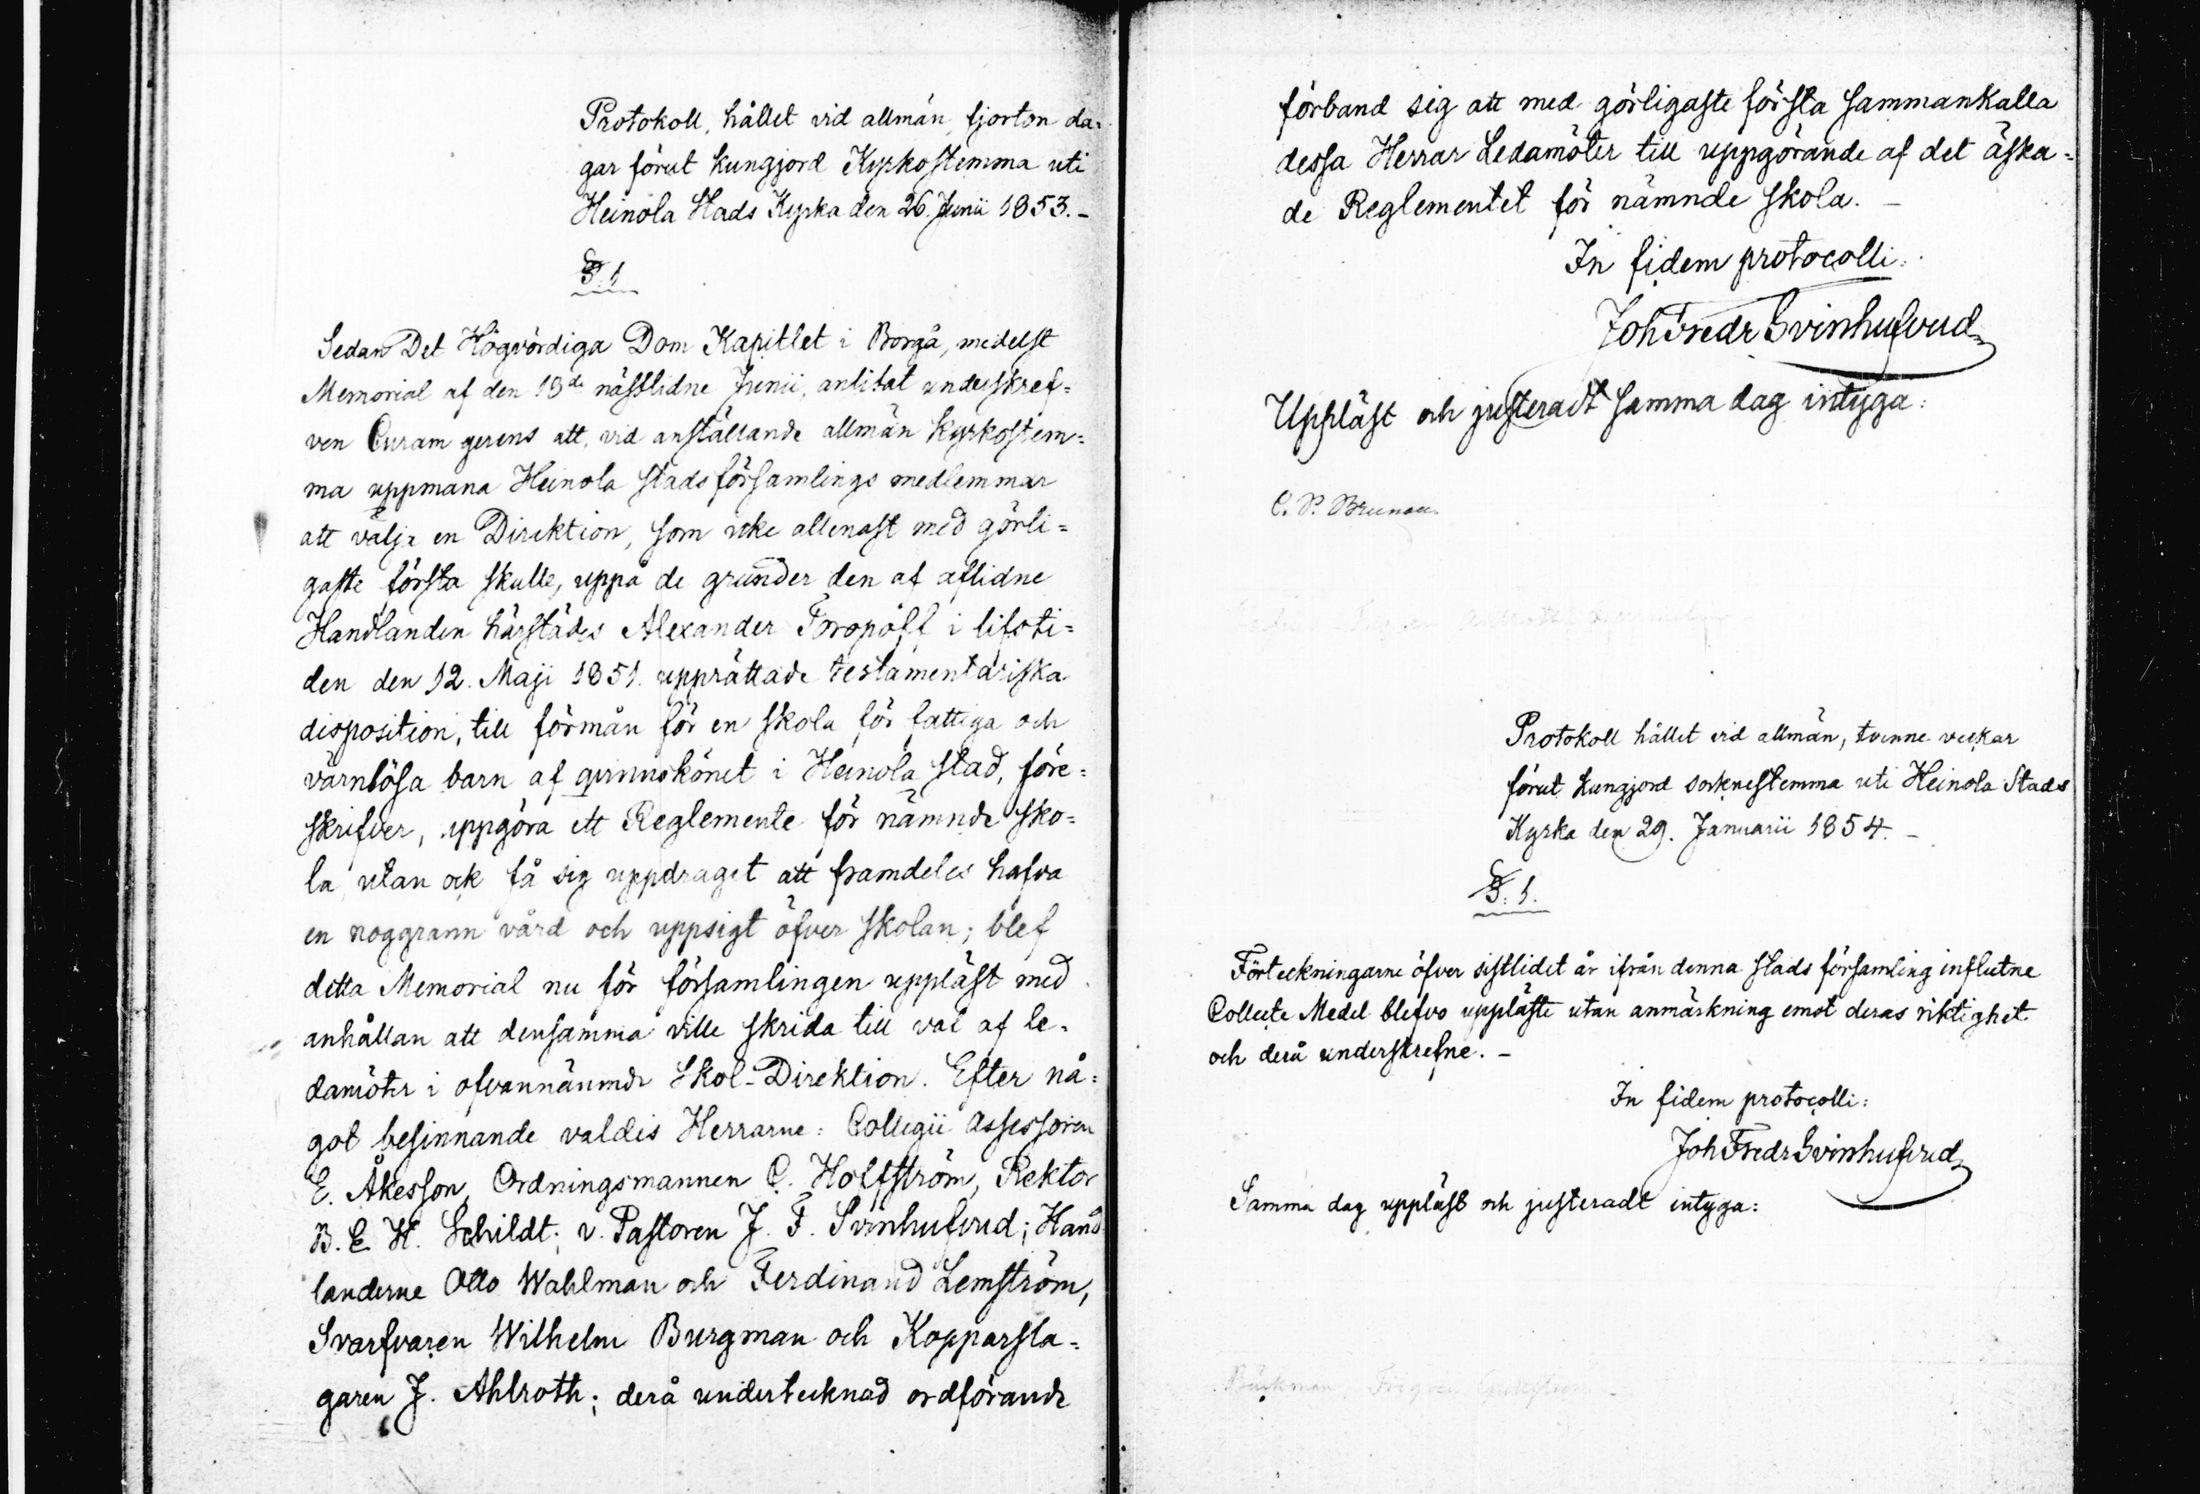 Protokoll, hållet vid allmän, fjorton da-
gar förut kungjord Kyrkostemma uti
Heinola Stads Kyrka den 26. Junii 1853. -
§. 1
Sedan Det Högvördiga Dom Kapitlet i Borgå, medelst
Memorial af den 13de nästlidne Junii, anlitat underskref=
ven Curam gerens att, vid anställande allmän Kyrkostem=
ma uppmana Heinola stadsförsamlings medlemmar
att välja en Direktion, som icke allenast med görli=
gaste första skulle, uppå de grunder den af aflidne
Handlanden härstädes Alexander Toropoff i lifsti=
den den 12. Maji 1851. upprättade testamentariska
disposition, till förmån för en skola för fattiga och
värnlösa barn af qvinnskönet i Heinola stad, före=
skrifver, uppgöra ett Reglemente för nämnde sko=
la, utan ock få sig uppdraget att framdeles hafva
en noggrann vård och uppsigt öfver skolan; blef
detta Memorial nu för församlingen uppläst med
anhållan att densamma ville skrida till val af le-
damöter i ofvannämnde Skol-Direktion. Efter nå=
got besinnande valdes Herrarne: Collegii Assessoren
E. Åkesson, Ordningsmannen C. Hoffström, Rektor
B. E. H. Schildt; v. Pastoren J. F. Svinhufvud; Hand
landerne Otto Wahlman och Ferdinand Lemström,
Svarfvaren Wilhelm Burgman och Kopparsla=
garen J. Ahlroth; derå undertecknad ordförande
förband sig att med görligaste första sammankalla
dessa Herrar Ledamöter till uppgörande af det äska=
de Reglementet för nämnde skola. -
In fidem protocolli:
Joh Fredr Svinhufvud
Uppläst och justeradt samma dag intyga:
C. P.
Protokoll hållet vid allmän, tvenne veckar
förut kungjord socknestemma uti Heinola Stads
Kyrka den 29. Januarii 1854. -
§. 1.
Förteckningarne öfver sistlidet år ifrån denna stads församling influtne
Collecte Medel blefvo uppläste utan anmärkning emot deras riktighet
och derå underskrefne. -
In fidem protocolli:
Joh Fredr Svinhufvud
Samma dag uppläst och justeradt intyga:
Bäckman